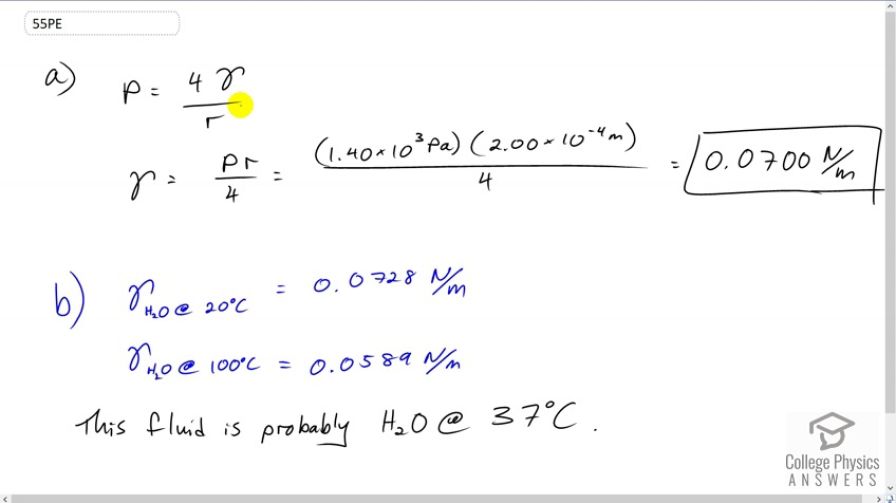 55PE
a) P = 4γ / r
γ = Pr / 4 = (1.40 × 10³ Pa)(2.00 × 10⁻⁴ m) / 4 = 0.0700 N/m
b) γ H₂O @ 20°C = 0.0728 N/m
γ H₂O @ 100°C = 0.0589 N/m
This fluid is probably H₂O @ 37°C.
College Physics
ANSWERS